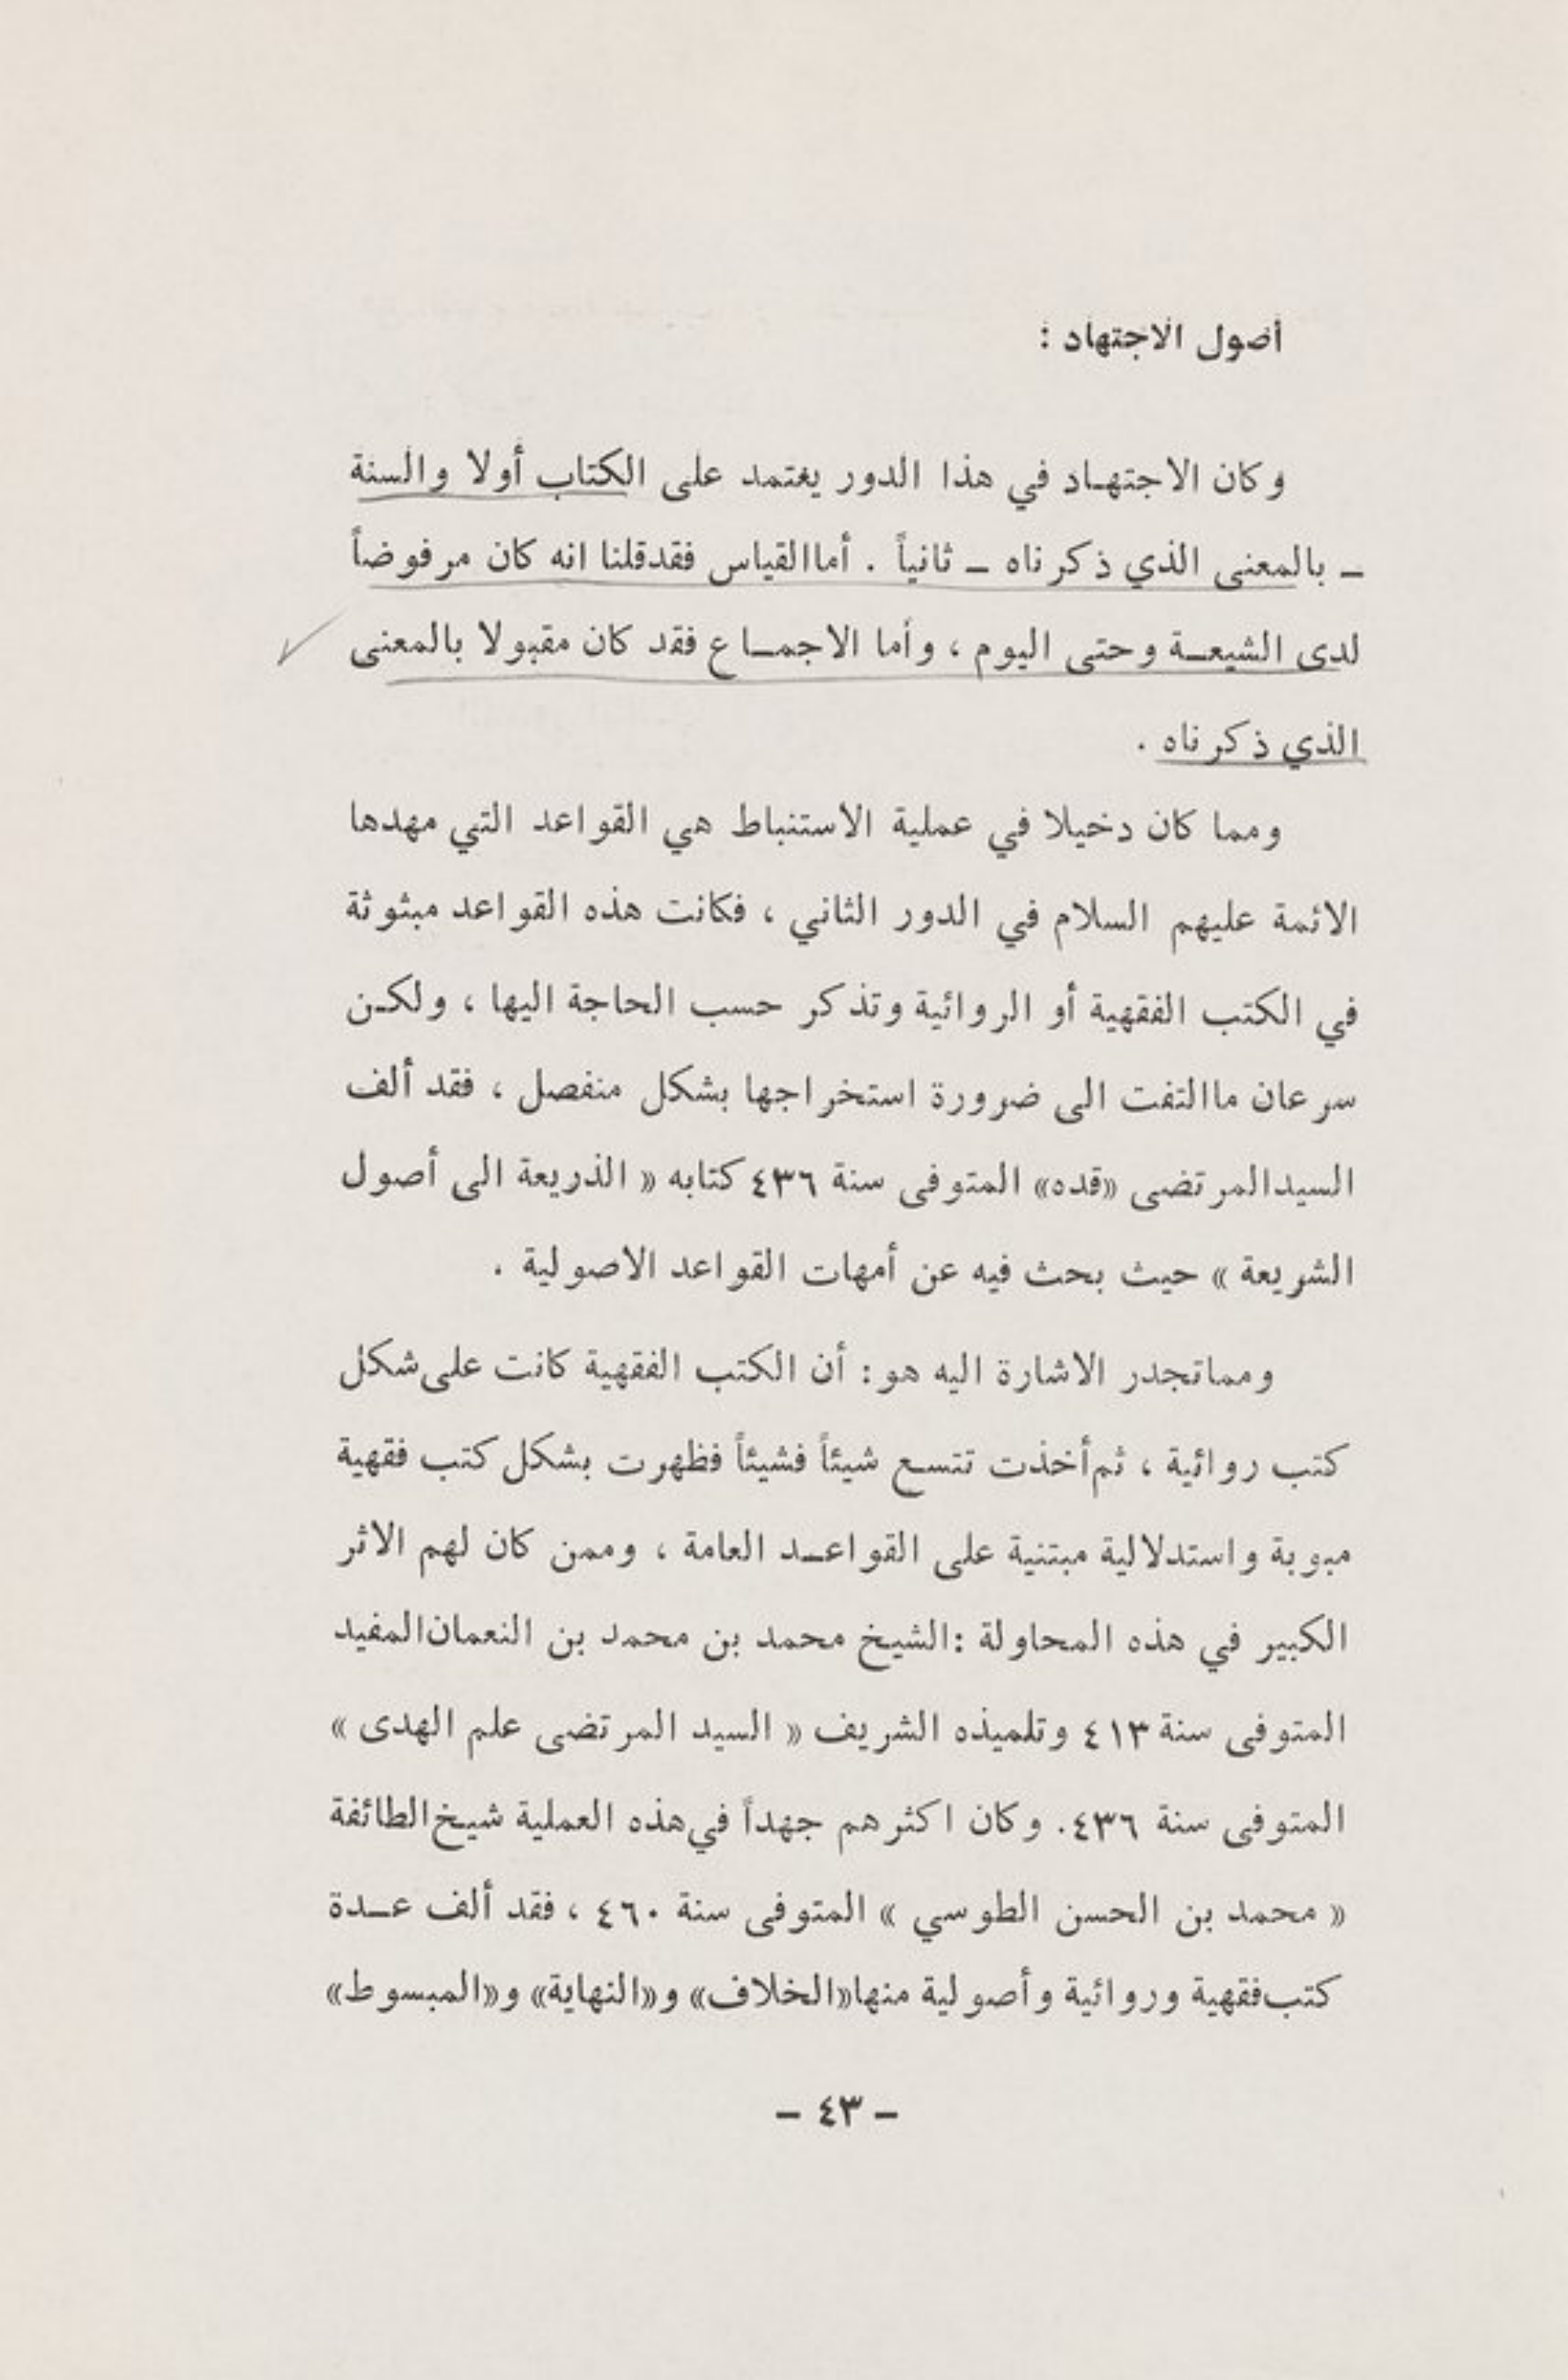 أصول الاجتهاد :
وكان الاجتهاد في هذا الدور يعتمد على الكتاب أولا والسنة
ـ بالمعنى الذي ذكرناه ـ ثانياً . أما القياس فقد قلنا انه كان مرفوضاً
لدى الشيعة وحتى اليوم ، وأما الاجماع فقد كان مقبولا بالمعنى
الذي ذكرناه .
ومما كان دخيلا في عملية الاستنباط هي القواعد التي مهدها
الائمة عليهم السلام في الدور الثاني ، فكانت هذه القواعد مبثوثة
في الكتب الفقهية أو الروائية وتذكر حسب الحاجة اليها ، ولكن
سرعان ماالتفت الى ضرورة استخراجها بشكل منفصل ، فقد ألف
السيد المرتضى «قده» المتوفى سنة ٤٣٦ كتابه « الذريعة الى أصول
الشريعة » حيث بحث فيه عن أمهات القواعد الاصولية .
ومما تجدر الاشارة اليه هو : أن الكتب الفقهية كانت على شكل
كتب روائية ، ثم أخذت تتسع شيئاً فشيئاً فظهرت بشكل كتب فقهية
مبوبة واستدلالية مبتنية على القواعد العامة ، وممن كان لهم الاثر
الكبير في هذه المحاولة : الشيخ محمد بن محمد بن النعمان المفيد
المتوفى سنة ٤١٣ وتلميذه الشريف « السيد المرتضى علم الهدى »
المتوفى سنة ٤٣٦. وكان اكثرهم جهداً في هذه العملية شيخ الطائفة
« محمد بن الحسن الطوسي » المتوفى سنة ٤٦٠ ، فقد ألف عدة
كتب فقهية وروائية وأصولية منها «الخلاف» و«النهاية» و«المبسوط»
ـ ٤٣ ـ